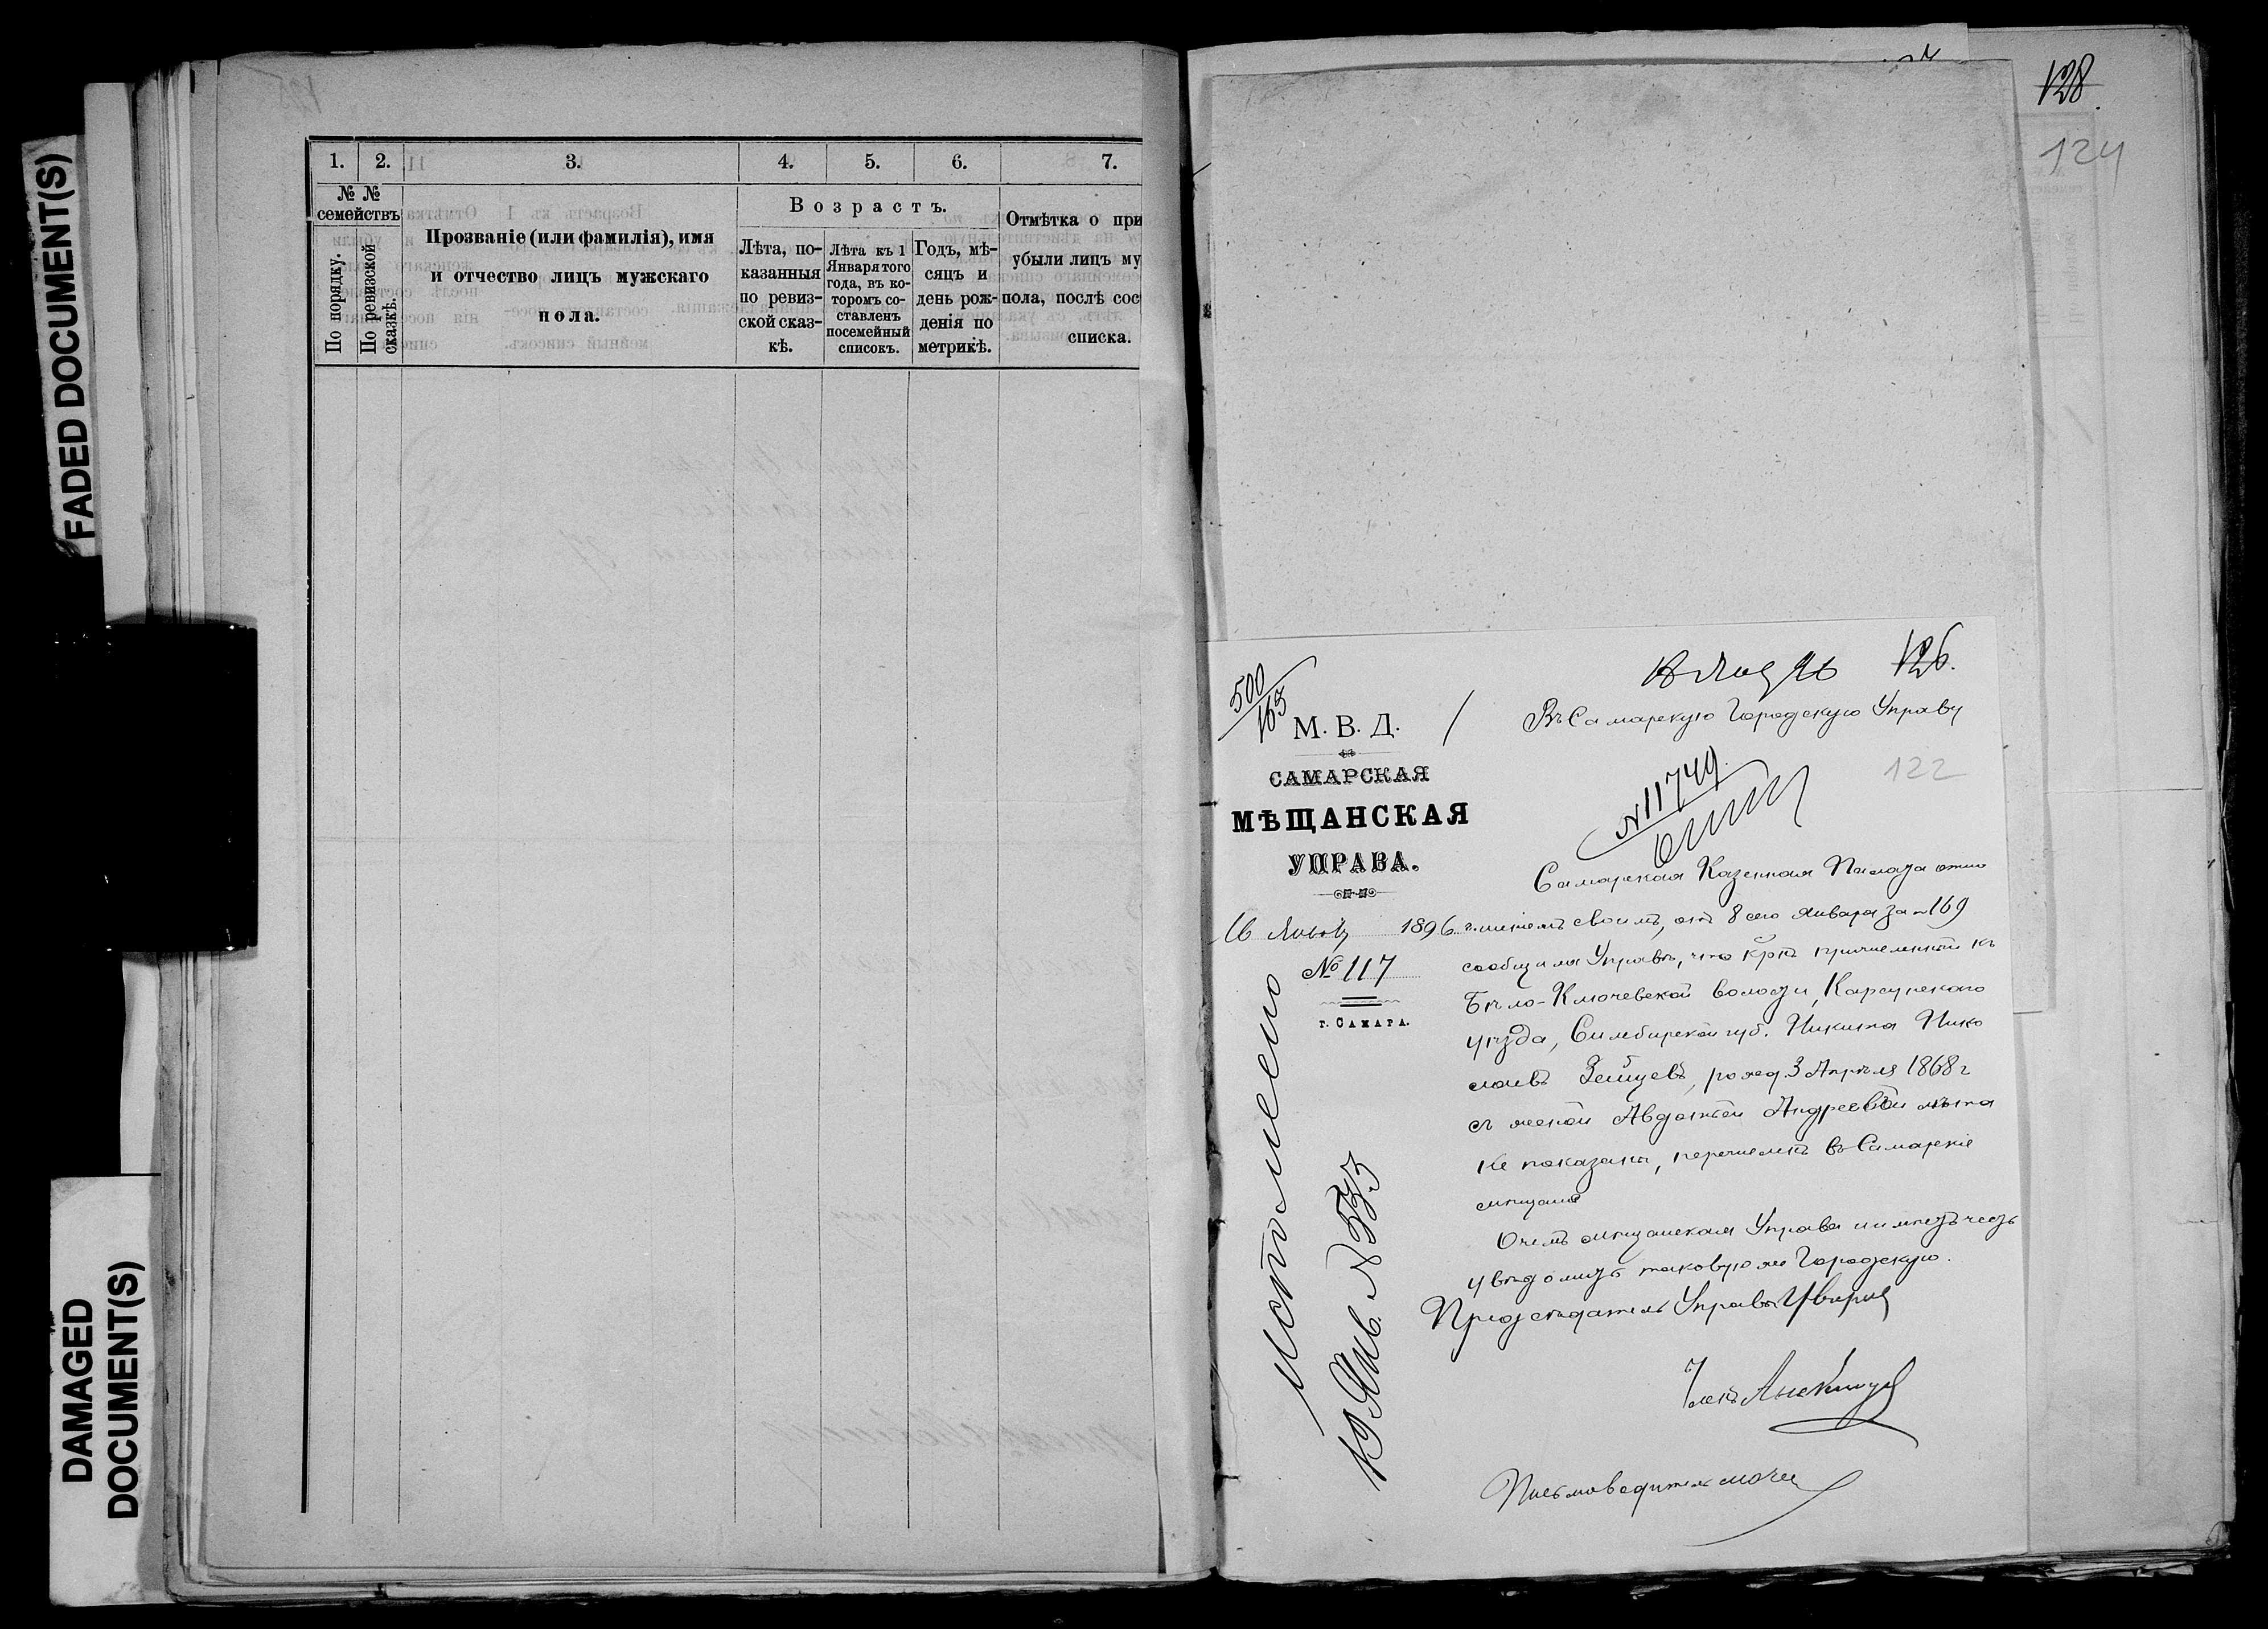 FADED DOCUMENT(S)
DAMAGED
DOCUMENT(S)
1. 2. 3. 4. 5. 6. 7.
№ №
семействъ
По порядку.
По ревизской
сказкѣ.
Прозваніе (или фамилія), имя
и отчество лицъ мужскаго
пола.
Возрастъ.
Лѣта, по-
казанныя
по ревиз-
ской сказ-
кѣ.
Лѣта къ 1
Января того
года, въ ко-
торомъ со-
ставленъ
посемейный
списокъ.
Годъ, мѣ-
сяцъ и
день рож-
денія по
метрикѣ.
Отмѣтка о при
убыли лицъ му
пола, послѣ сос
списка.
128.
124
126.
500/163
М. В. Д.
САМАРСКАЯ
МѢЩАНСКАЯ
УПРАВА.
16 1896 г.
№ 117
г. САМАРА.
Исполнено
19 Янв. №
Въ Самарскую Городскую Управу
122
№ 11749
Самарская Казенная Палата отно
шеніемъ своимъ, отъ 8 сего Января за № 169
сообщила Управѣ, что причисленный къ
Бѣло-Ключевской волости, Карсунскаго
уѣзда, Симбирской губ. Никита Нико
лаевъ Зейцевъ, рожд. 3 Апрѣля 1868 г
съ женой Авдотьей Андреевой лѣта
не показаны, перечисленъ въ Самарскіе
мѣщане
О чемъ мѣщанская Управа и имѣетъ честь
увѣдомить таковую же Городскую.
Предсѣдатель Управы
Членъ
Письмоводитель